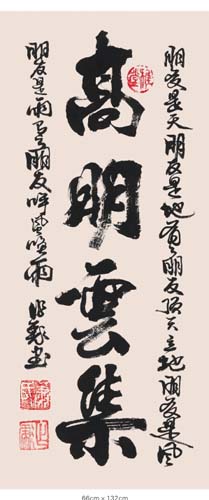 高朋雲集
朋友是天朋友是地有了朋友頂天立地朋友是風
朋友是雨有了朋友呼風喚雨
66cm x 132cm